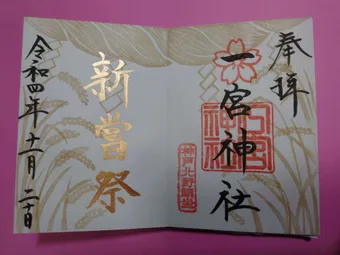 奉拝
一宮神社
一宮神社
神戸北野鎮座
新嘗祭
令和四年十一月二十日